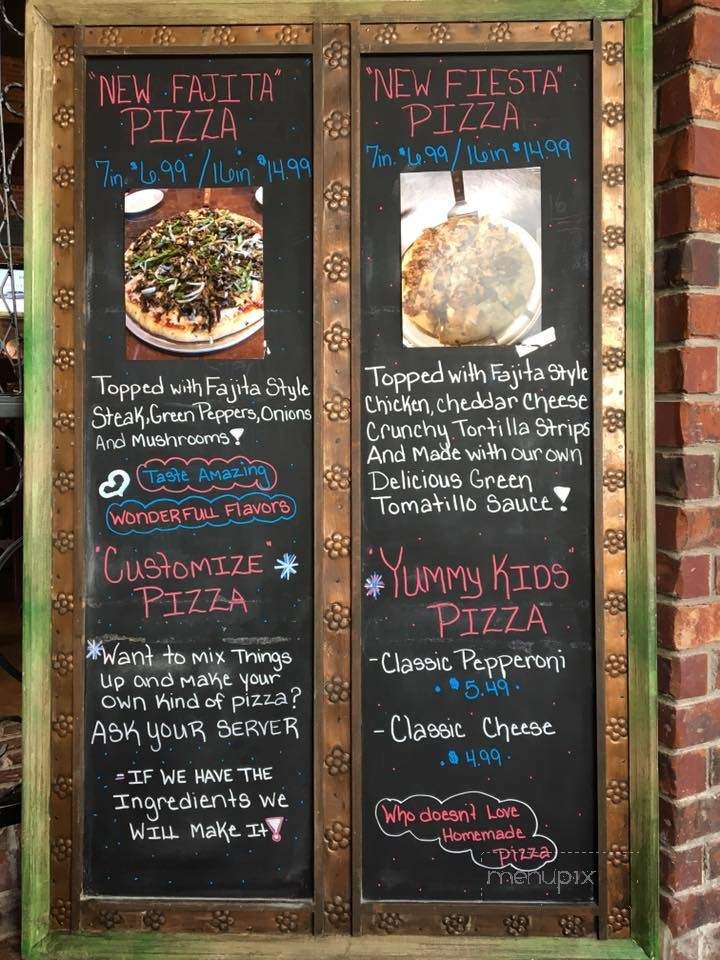 "NEW FAJITA"
PIZZA
7in. $6.99 / 16in. $14.99
Topped with Fajita Style
Steak, Green Peppers, Onions
And Mushrooms!
Taste Amazing
WONDERFULL Flavors
"Customize"
PIZZA
*Want to mix Things
up and make your
own kind of pizza?
ASK YOUR SERVER
=IF WE HAVE THE
Ingredients we
WILL Make It!
"NEW FIESTA"
PIZZA
7in. $6.99 / 16in $14.99
Topped with Fajita Style
Chicken, cheddar Cheese
Crunchy Tortilla Strips
And Made with our own
Delicious Green
Tomatillo Sauce!
"Yummy Kids"
PIZZA
-Classic Pepperoni
$5.49
-Classic Cheese
$4.99
Who doesn't Love
Homemade
Pizza
menupix